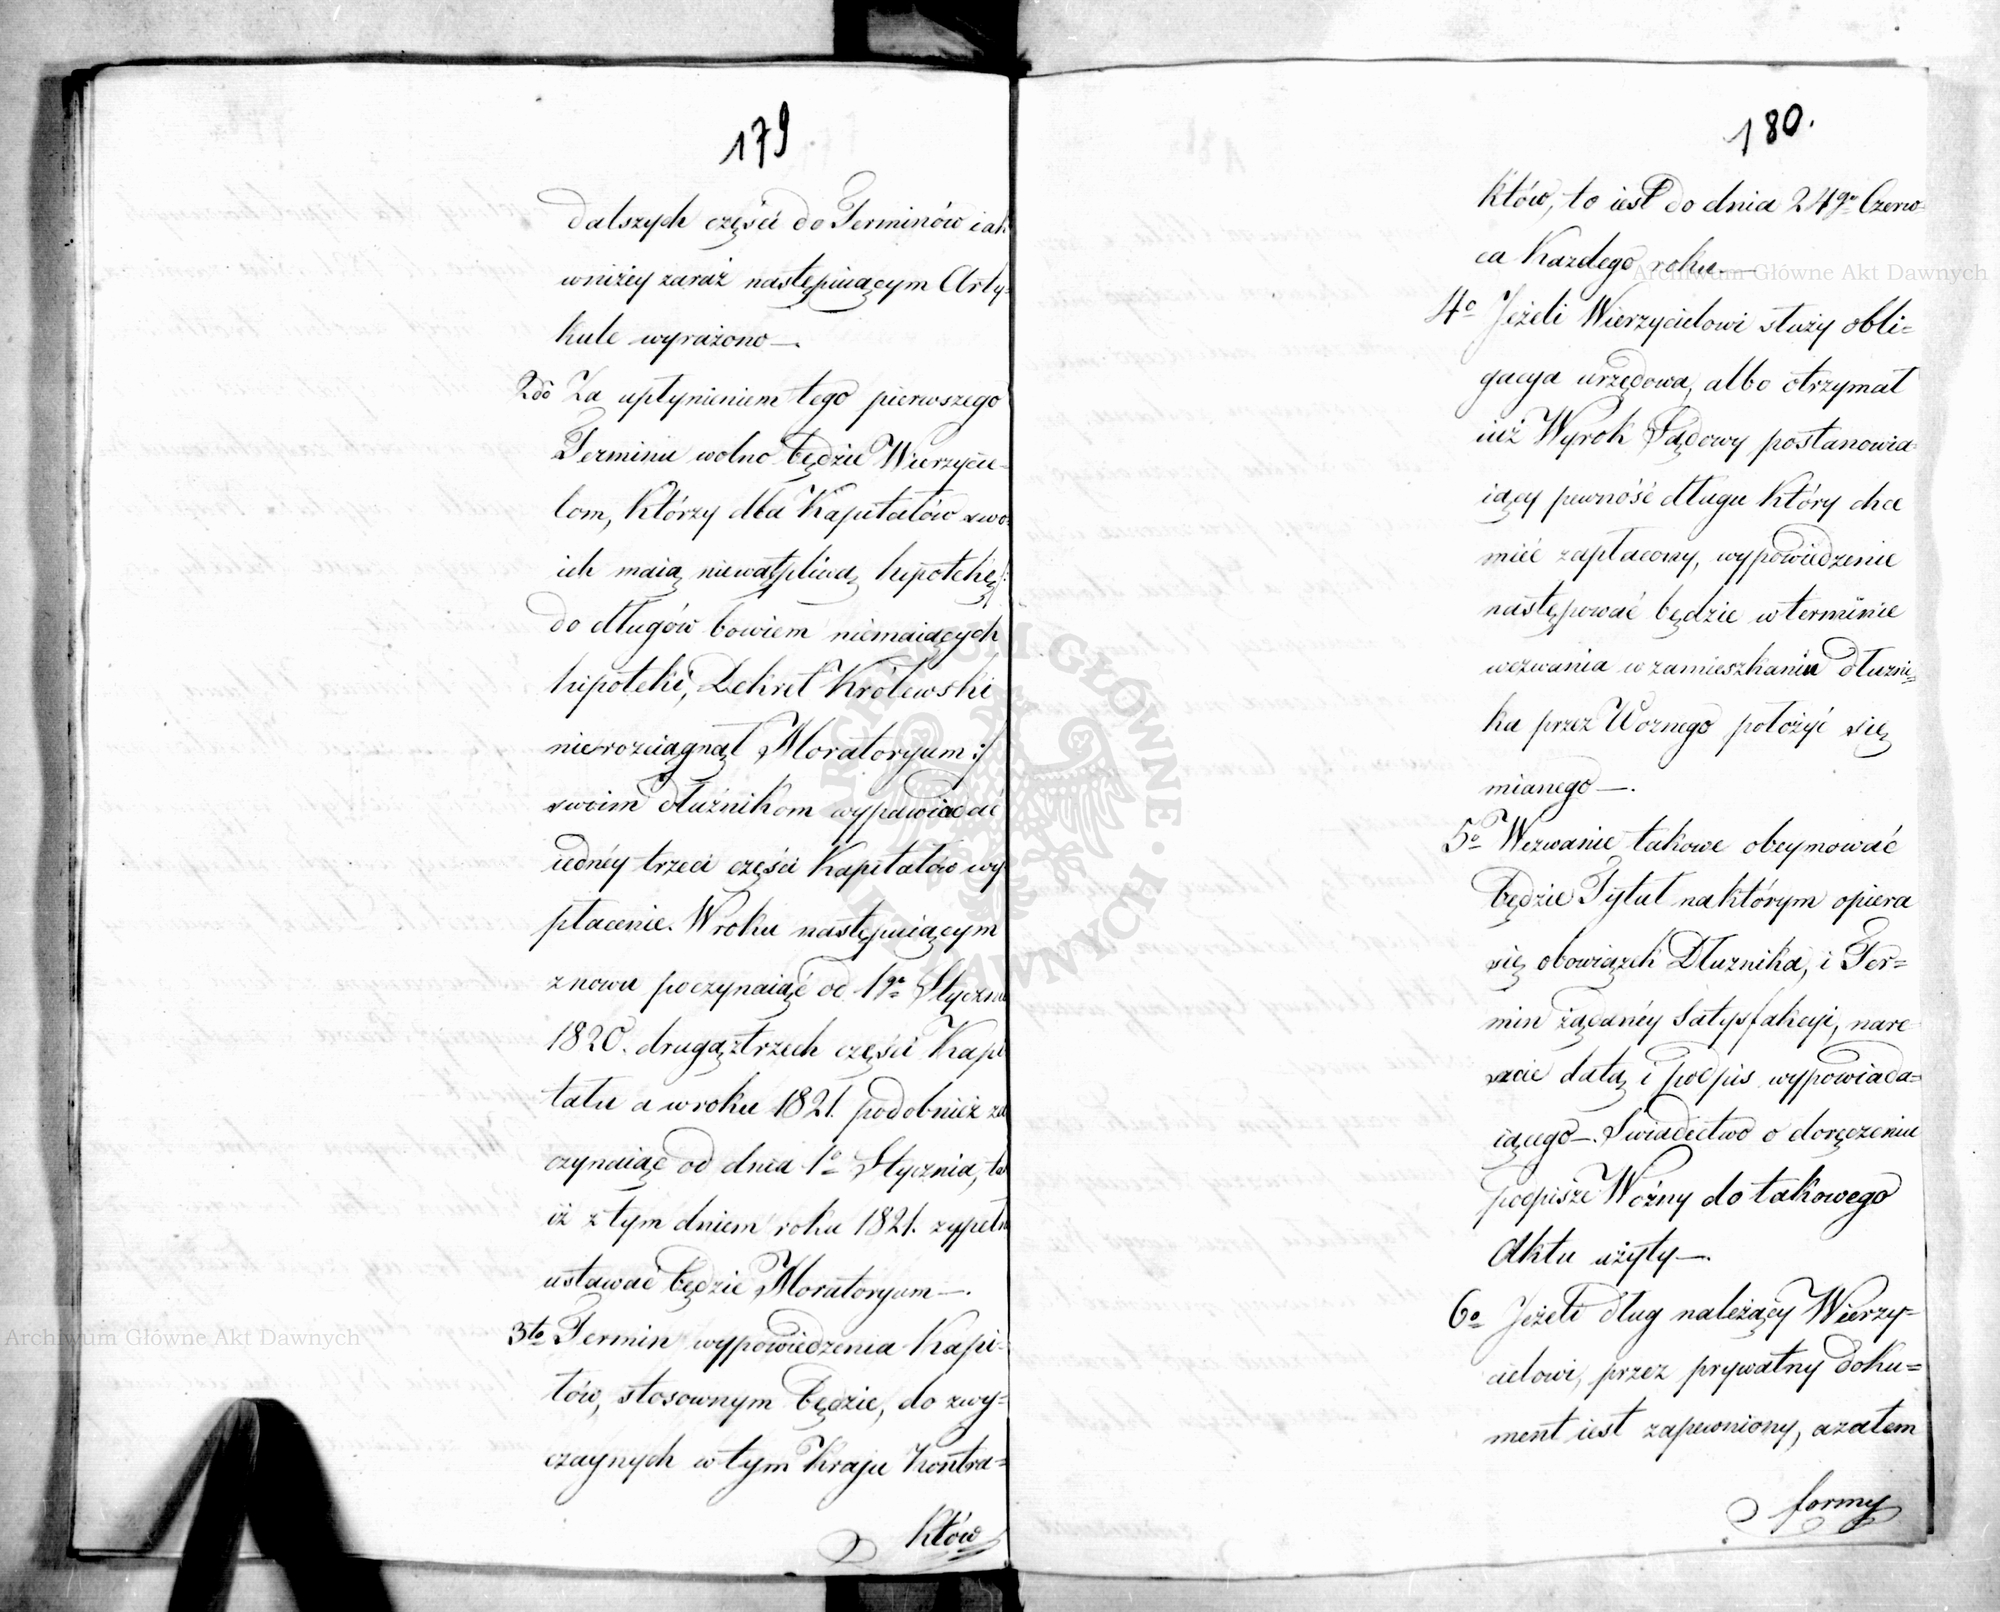 179
dalszych części do Terminów iak
wniżey zaraz następuiącym Arty-
kule wyrażono—.
2do Za upłynieniem tego pierwszego
Terminu wolno będzie Wierzycie-
lom, którzy dla Kapitałów swo-
ich maią niewątpliwą hipotekę/:
do długów bowiem niemaiących
hipoteki, Dekret Królewski
nierozciągnął Moratoryum:/
swoim dłużnikom wypowiadać
iednéy trzeci części Kapitałów wy
płacenie. W roku następuiącym
znowu poczynaiąć od 1go Stycznia
1820. drugą z trzech części Kapi
tału a w roku 1821. podobnież za
czynaiąc od dnia 1o Stycznia, ta
iż z tym dniem roku 1821. zypełn
ustawać będzie Moratoryum—.
3tio Termin wypowiedzenia Kapi-
tów, stosownym będzie, do zwy-
czaynych w tym Kraju Kontra-
któw
180.
któw, to iest do dnia 24go Czerw-
ca Każdego roku.—
4o Jeżeli Wierzycielowi służy obli-
gacya urzędowa, albo otrzymał
iuż Wyrok Sądowy postanowia-
iący pewność długu który chce
mieć zapłacony, wypowiedzenie
następować będzie w terminie
wezwania w zamieszkaniu dłużni-
ka przez Woznego położyć się
mianego—.
5o Wezwanie takowe obeymować
będzie Tytuł na którym opiera
się obowiązek Dłużnika, i Ter-
min żądanéy Satysfakcyi, nare
szcie datą i podpis wypowiada-
iącego—. Swiadectwo o doręczeniu
podpisze Woźny do takowego
Aktu użyty—.
6o Jeżeli dług należący Wierzy-
cielowi, przez prywatny doku-
ment iest zapewniony, azatem
formy
Archiwum Główne Akt Dawnych
Archiwum Główne Akt Dawnych
ARCHIWUM GŁÓWNE AKT DAWNYCH